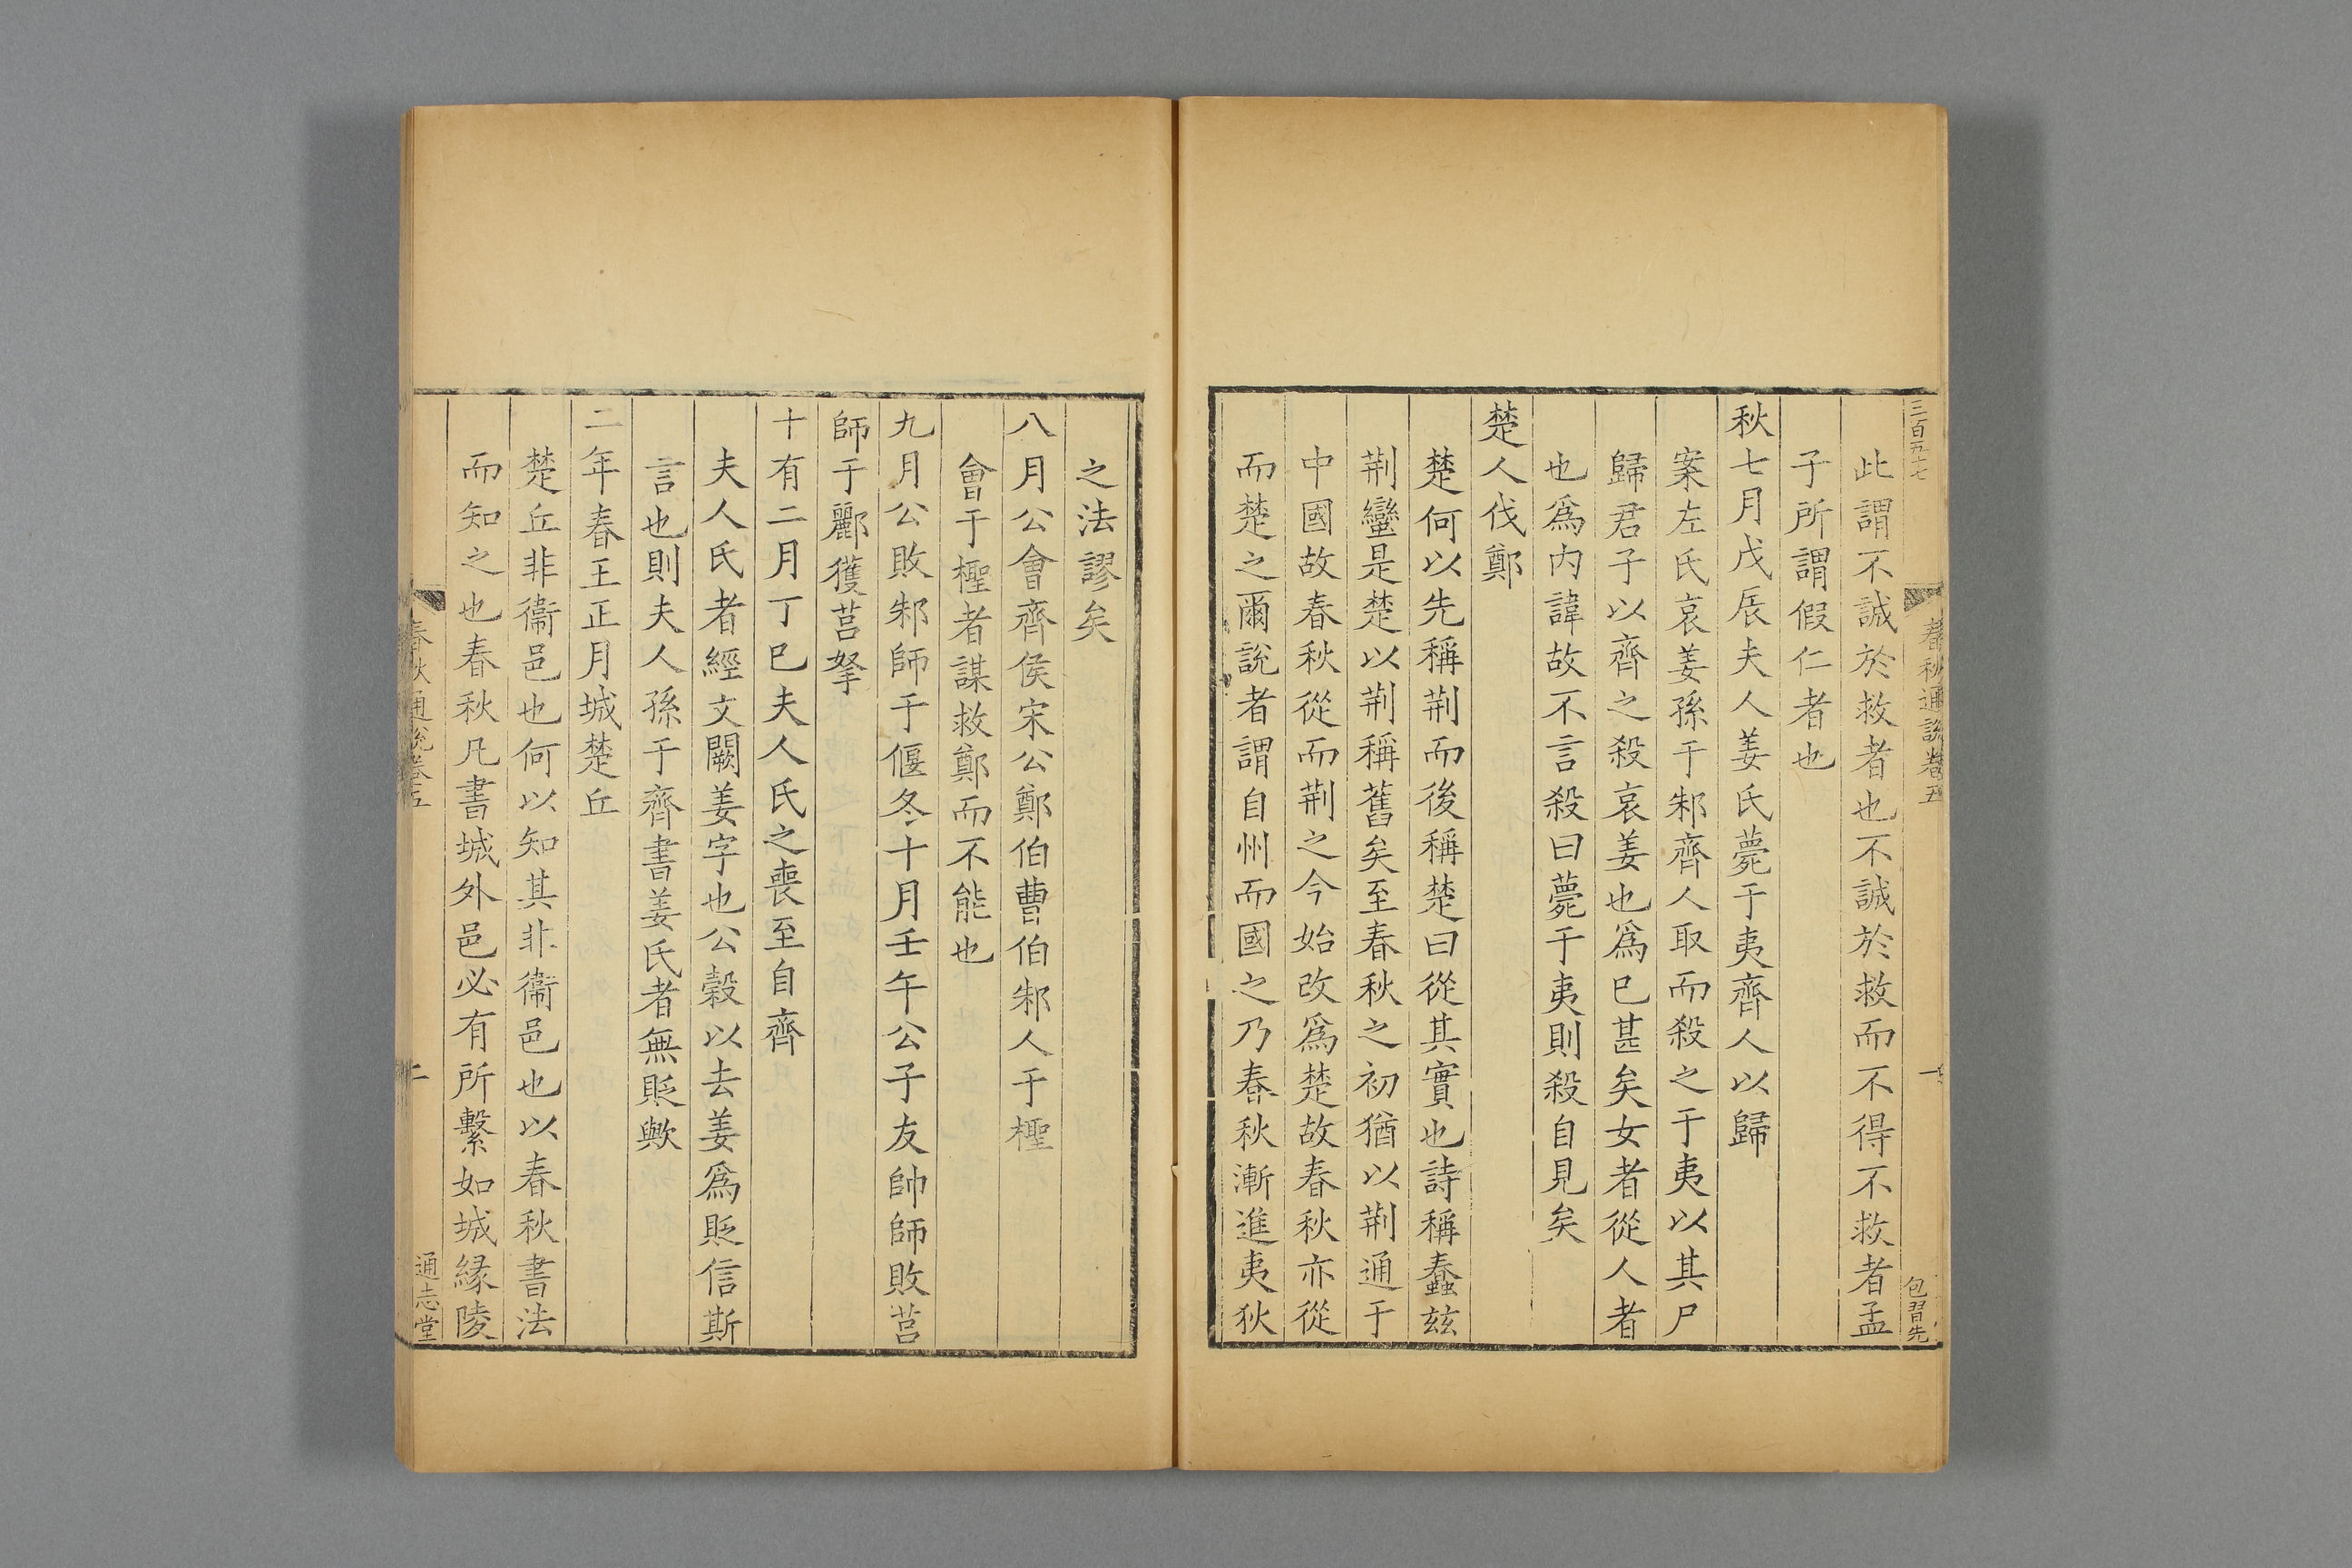 三百五十七
春秋通說卷五
一
包習先
此謂不誠於救者也不誠於救而不得不救者孟
子所謂假仁者也
秋七月戊辰夫人姜氏薨于夷齊人以歸
案左氏哀姜孫于邾齊人取而殺之于夷以其尸
歸君子以齊之殺哀姜也爲已甚矣女者從人者
也爲内諱故不言殺曰薨于夷則殺自見矣
楚人伐鄭
楚何以先稱荆而後稱楚曰從其實也詩稱蠢兹
荆蠻是楚以荆稱舊矣至春秋之初猶以荆通于
中國故春秋從而荆之今始改爲楚故春秋亦從
而楚之爾說者謂自州而國之乃春秋漸進夷狄
之法謬矣
八月公會齊侯宋公鄭伯曹伯邾人于檉
會于檉者謀救鄭而不能也
九月公敗邾師于偃冬十月壬午公子友帥師敗莒
師于酈獲莒拏
十有二月丁巳夫人氏之喪至自齊
夫人氏者經文闕姜字也公穀以去姜爲貶信斯
言也則夫人孫于齊書姜氏者無貶歟
二年春王正月城楚丘
楚丘非衞邑也何以知其非衞邑也以春秋書法
而知之也春秋凡書城外邑必有所繫如城緣陵
春秋通說卷五
二
通志堂